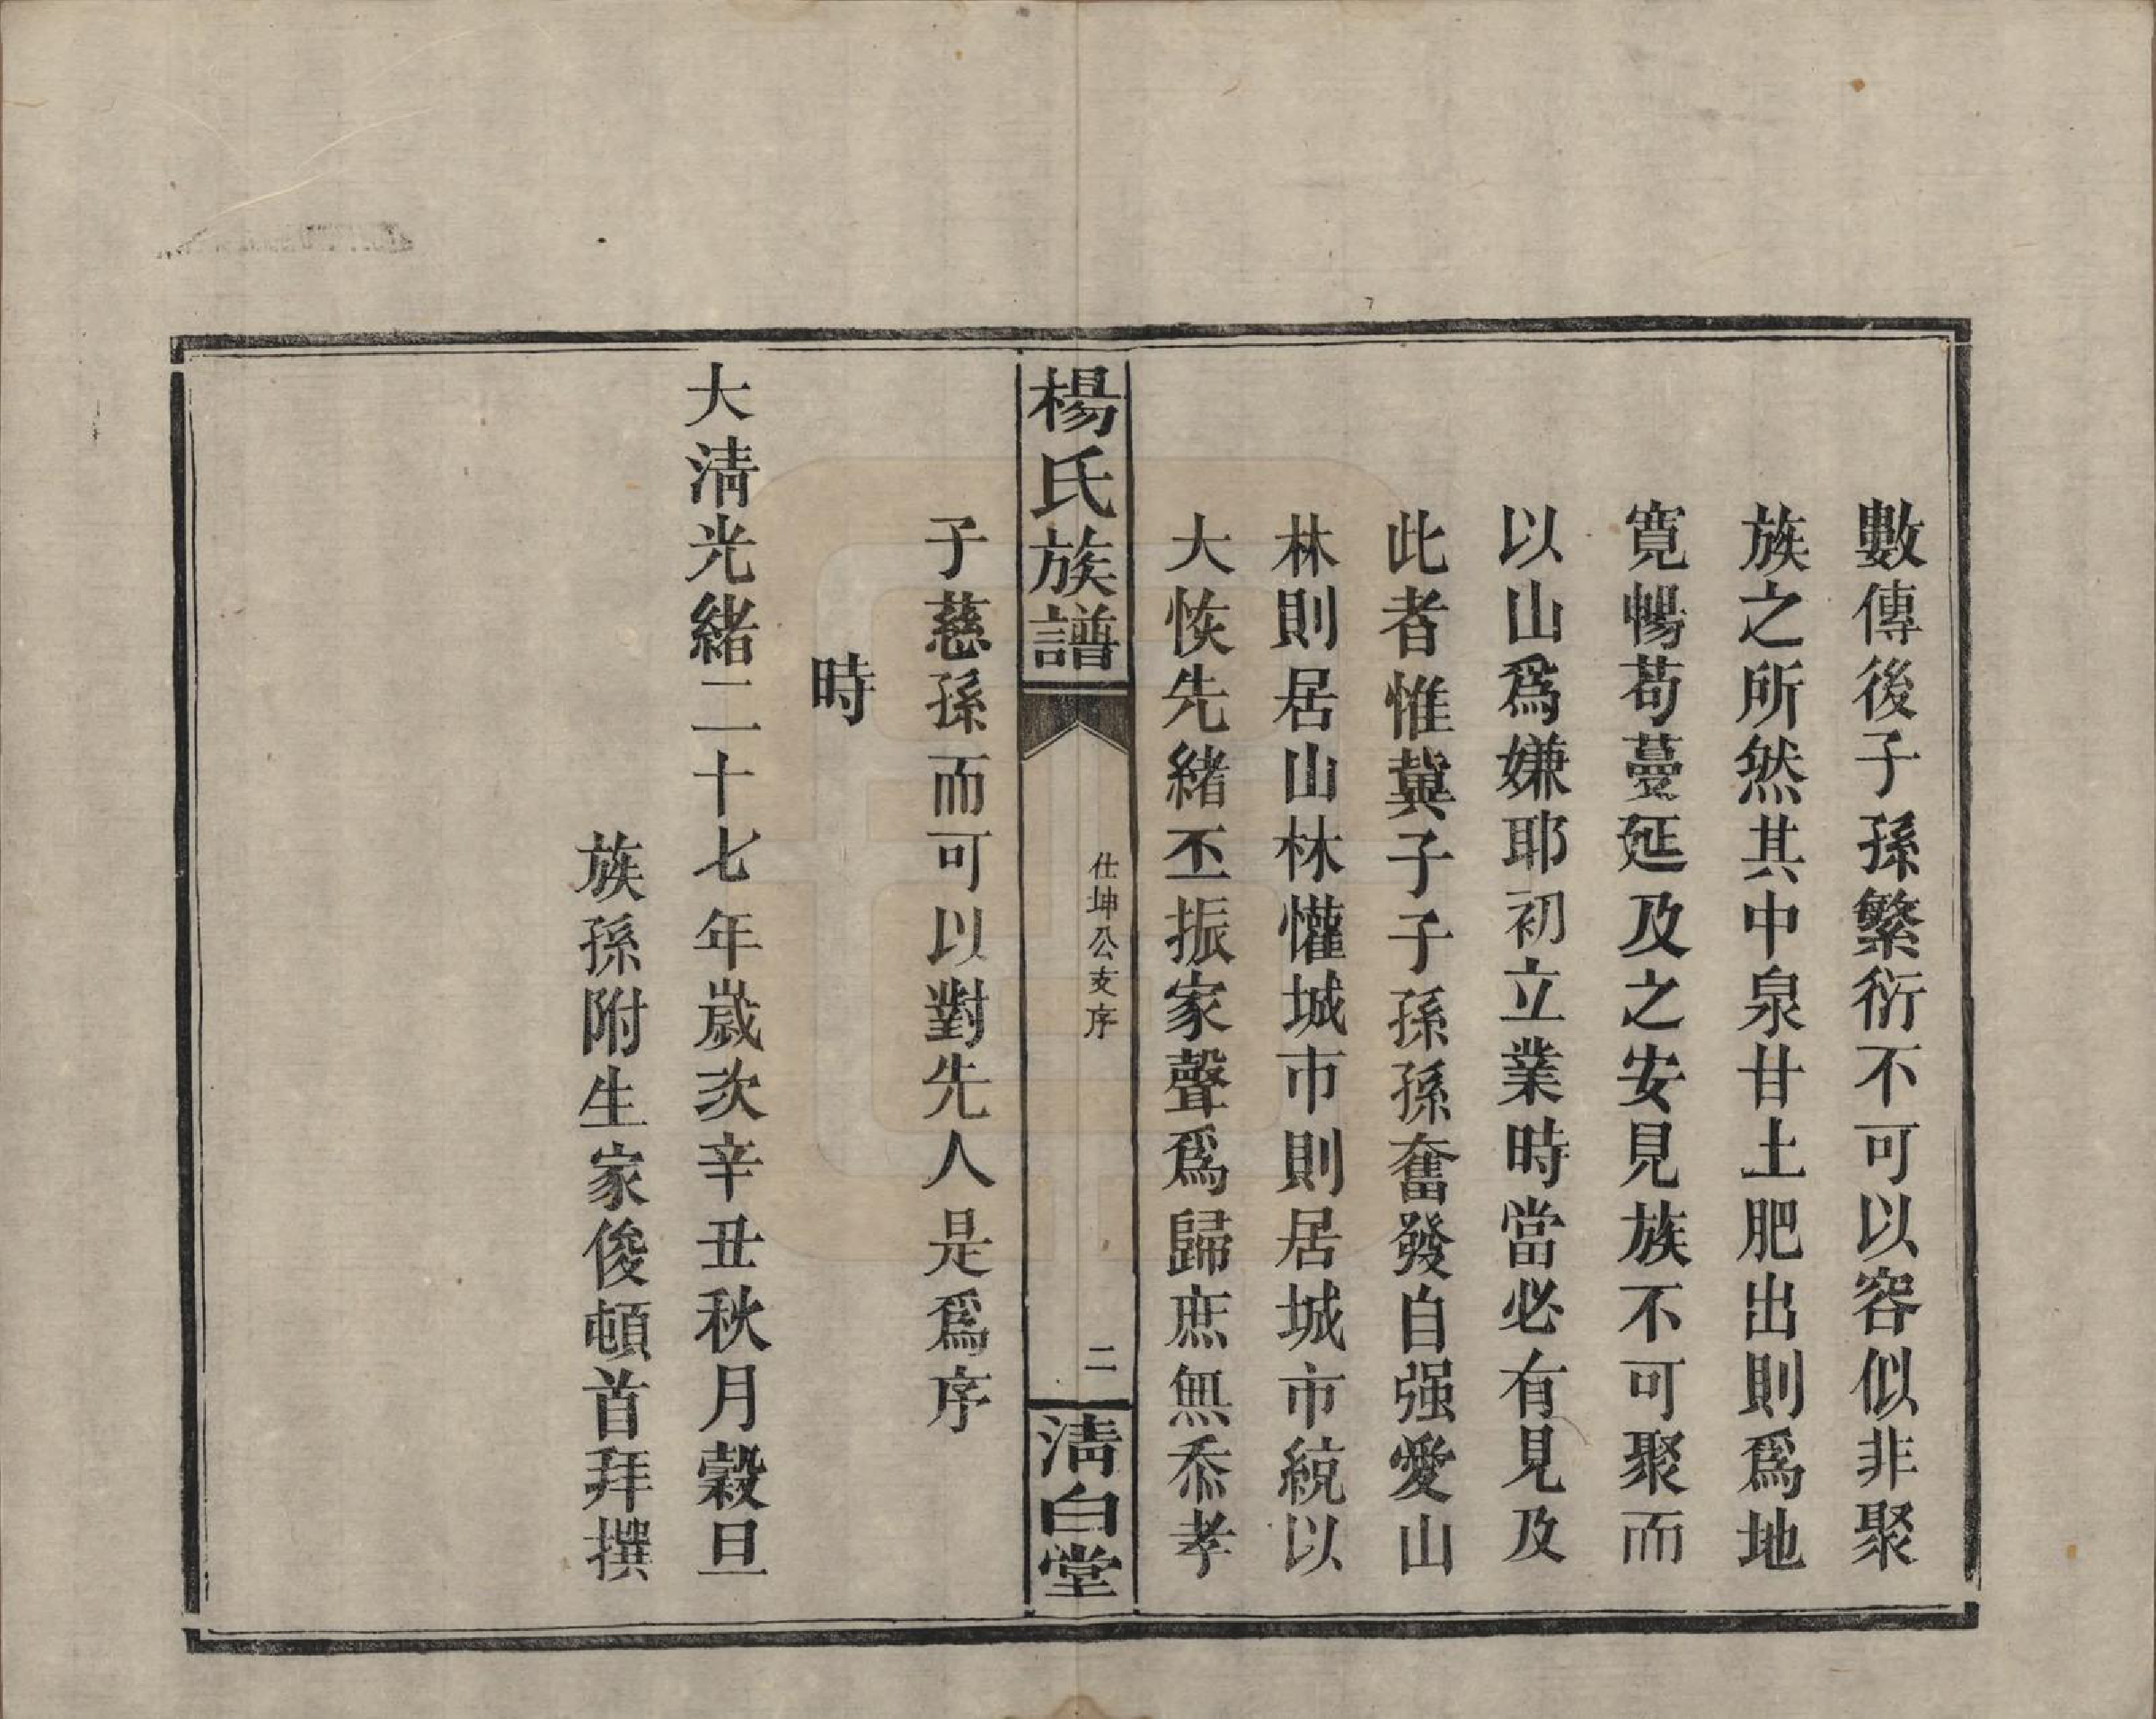 數傳後子孫繁衍不可以容似非聚
族之所然其中泉甘土肥出則爲地
寛暢苟蔓延及之安見族不可聚而
以山爲嫌耶初立業時當必有見及
此者惟冀子子孫孫奮發自强愛山
林則居山林懽城市則居城市統以
大恢先緒丕振家聲爲歸庶無忝孝
楊氏族譜
仕坤公支序
二
淸白堂
子慈孫而可以對先人是爲序
時
大淸光緒二十七年歲次辛丑秋月穀旦
族孫附生家俊頓首拜撰